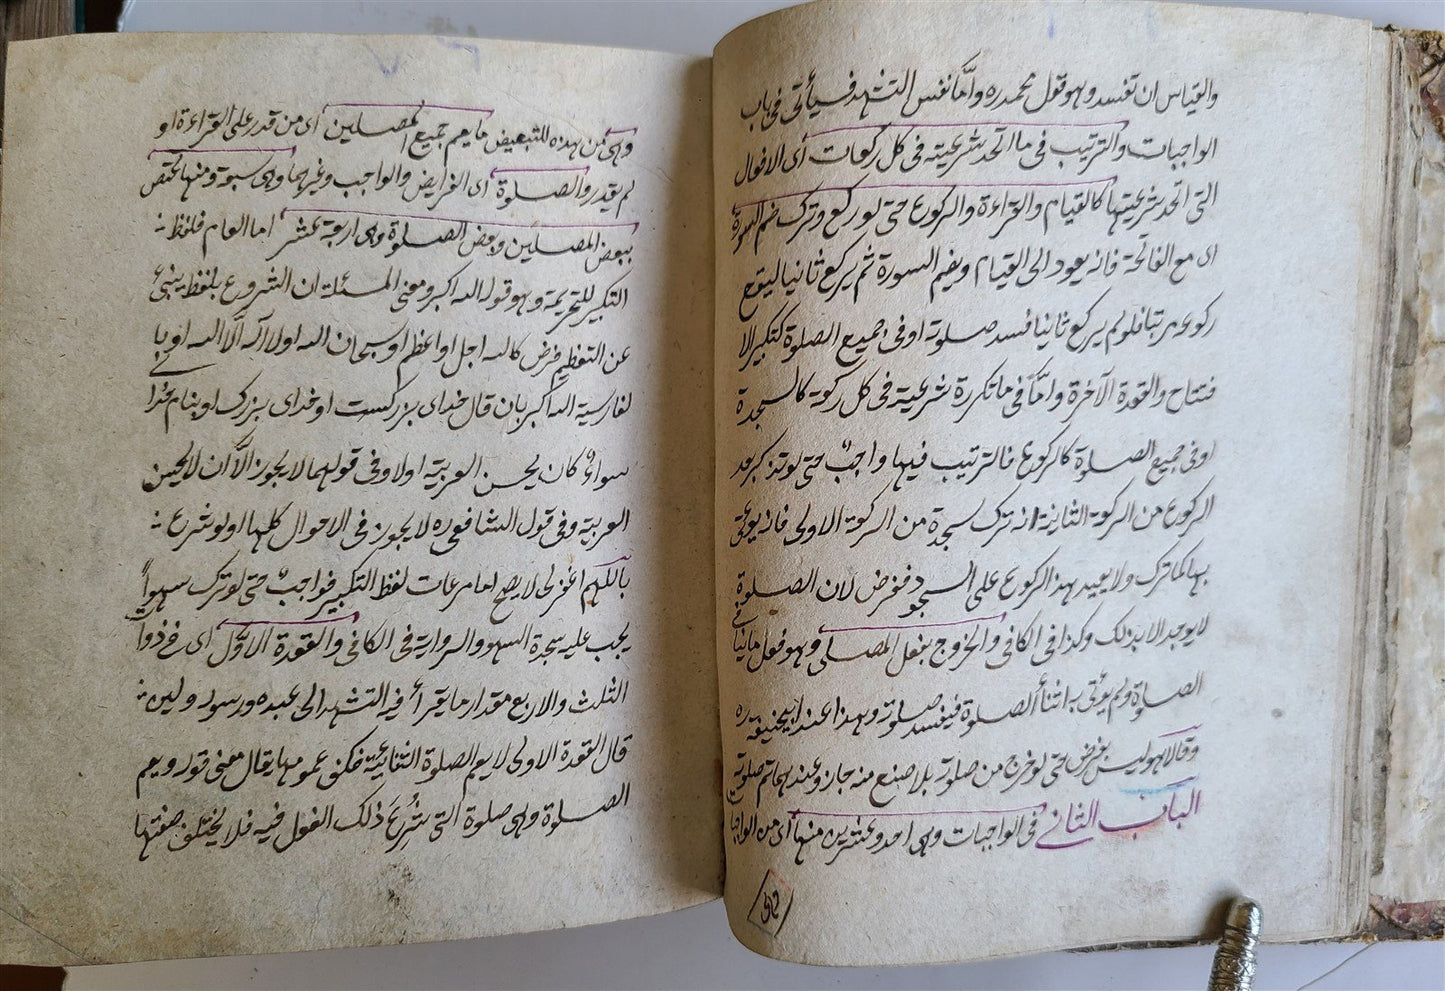 والقياس ان تفسد وهو قول محمد ره واما نفس التشهد فسيأتى فى باب
الواجبات والترتيب فى ما اتحد شرعيته فى كل ركعات اى الافعال
التى اتحد شرعيتها كالقيام والقراءة والركوع حتى لو ركع وترك ضم السورة
اى مع الفاتحة فانه يعود الى القيام ويضم السورة ثم يركع ثانيا ليقع
ركوعه مرتبا فلو لم يركع ثانيا فسد صلوته او فى جميع الصلوة كتكبير الا
فتتاح والقعدة الآخرة واما فى ما تكررة شرعيته فى كل ركعة كالسجدة
او فى جميع الصلوة كالركوع فالترتيب فيها واجب حتى لو تذكر بعد
الركوع من الركعة الثانية انه ترك سجدة من الركعة الاولى فانه
بها لما ترك ولا يعيد بهذا الركوع على السجود فوفرض لان الصلوة
لا يوجد الا بذلك وكذا فى الكافى والخروج بفعل المصلى وهو فعل ما نيافى
الصلوة ولم يؤتى به اثناء الصلوة فيفسد صلوته وهذا عند ابيحنيفه ره
وقالا هو ليس بفرض حتى لو خرج من صلوته بلا صنع منه جاز وعندهما تم صلوته
الباب الثانى فى الواجبات وهى احد وعشرين منها اى من الواجبا
وهى
وهى من هذه للتبعيض ما يعم جميع المصلين اى من قدر على القراءة او
لم يقدر والصلوة اى الفرايض والواجب وغيرهما وهى سبعة ومنها تختص
ببعض المصلين وبعض الصلوة وهى اربعة عشر اما العام فلفظ
التكبير للتحريمة وهو قوله الله اكبر ومعنى المسئلة ان الشروع بلفظ ينبئ
عن التعظيم فرض كالله اجل او اعظم او سبحان الله او لا اله الا الله او با
لفارسية الله اكبر بان قال خداى بزركست او خداى بزرك او بنام خدا
سواء كان يحسن العربية او لا وفى قولهما لا يجوز الا ان لا يحسن
العربية وفى قول الشافعى ره لا يجوز فى الاحوال كلها او لو شرع
باللهم اغفر لى لا يصح اما مرعات لفظ التكبير فواجب حتى لو ترك سهوا
يجب عليه سجدة السهو والرواية فى الكافى والقعدة الاولى اى فى ذوا
الثلث والاربع مقدار ما يقرأ فيه التشهد الى عبده ورسوله ولئن
قال القعدة الاولى لا يعم الصلوة الثنائية فكيف عمومها يقال معنى قوله ويعم
الصلوة وهى صلوة التى شرع ذلك الفعل فيه فلا يختلف صفتها